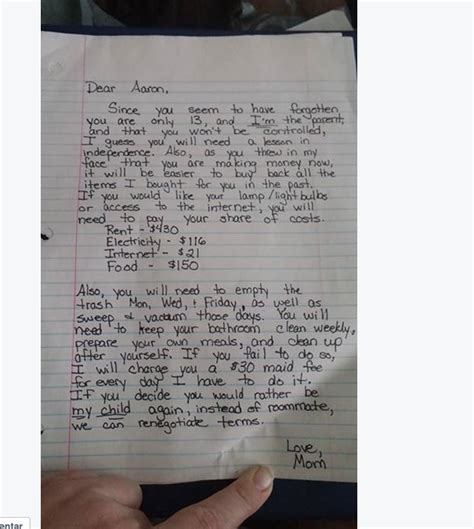 Dear Aaron,
Since you seem to have forgotten
you are only 13, and I'm the parent,
and that you won't be controlled,
I guess you will need a lesson in
independence. Also, as you threw in my
face that you are making money now,
it will be easier to buy back all the
items I bought for you in the past.
If you would like your lamp/light bulbs
or access to the internet, you will
need to pay your share of costs.
Rent - $430
Electricity - $116
Internet - $21
Food - $150
Also, you will need to empty the
trash Mon, Wed, + Friday, as well as
sweep & vacuum those days. You will
need to keep your bathroom clean weekly,
prepare your own meals, and clean up
after yourself. If you fail to do so,
I will charge you a $30 maid fee
for every day I have to do it.
If you decide you would rather be
my child again, instead of roommate,
we can renegotiate terms.
Love,
Mom
entar